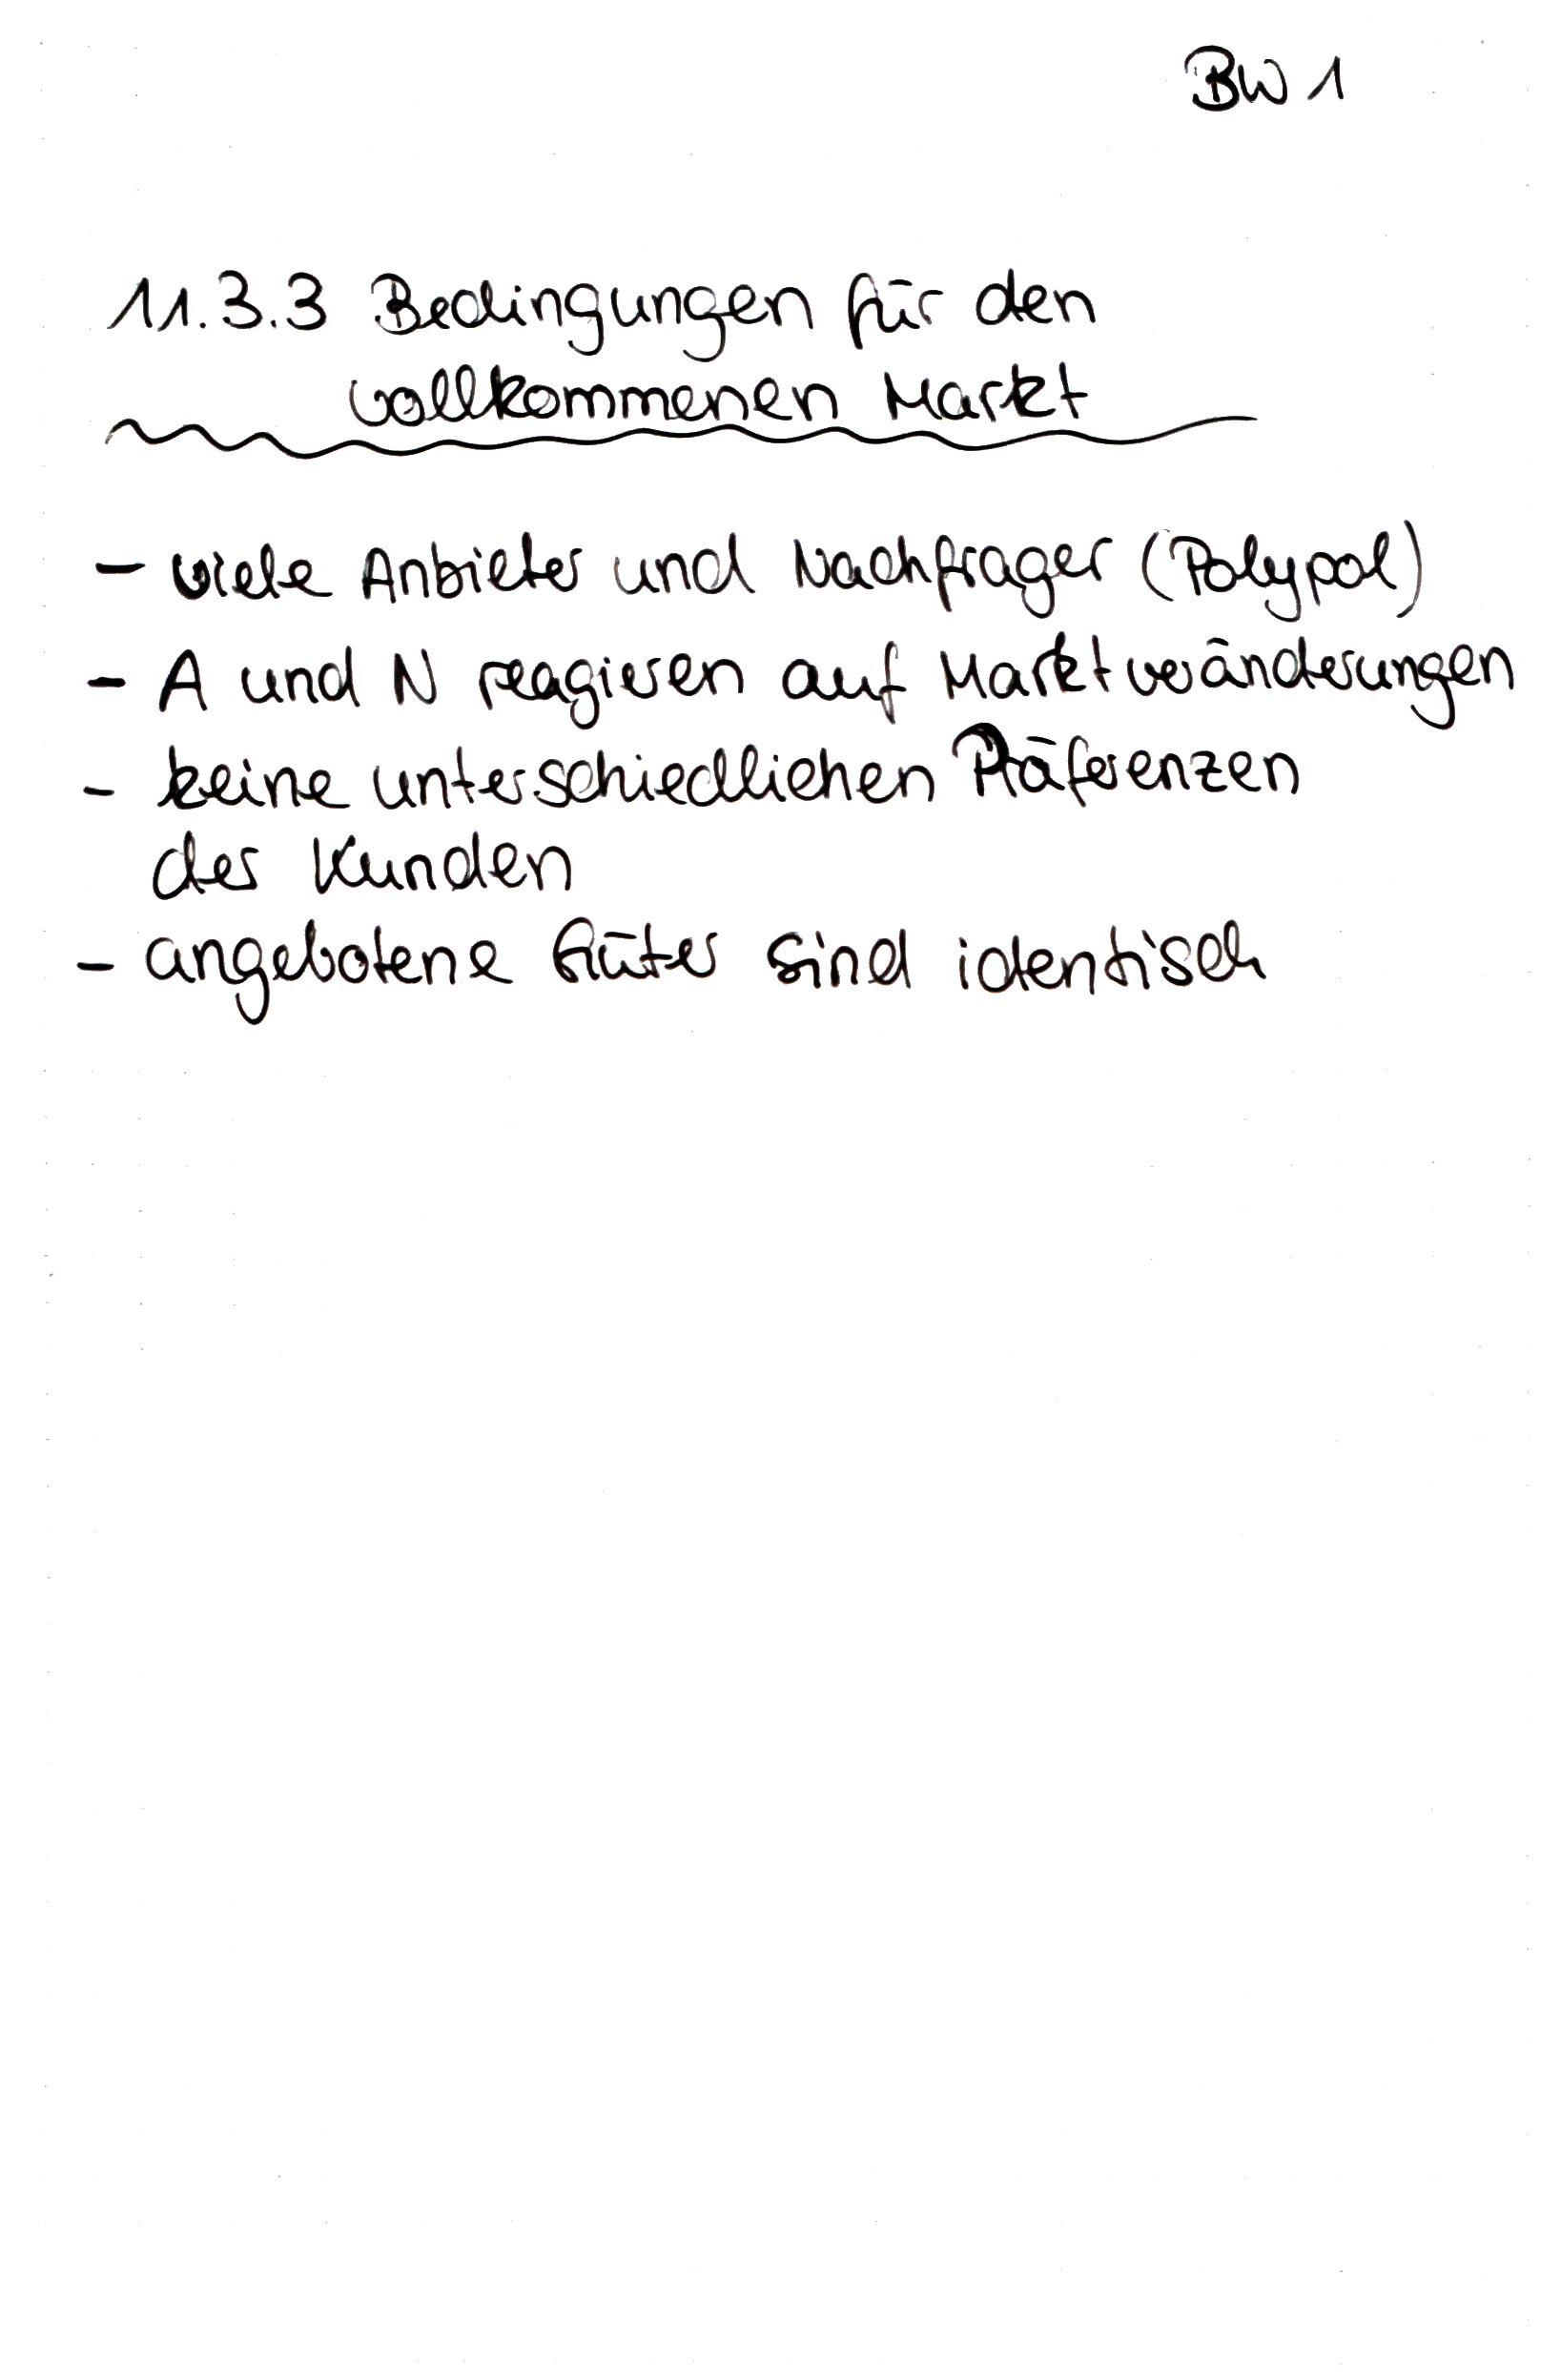 BW 1
11.3.3 Bedingungen für den
vollkommenen Markt
- viele Anbieter und Nachfrager (Polypol)
- A und N reagieren auf Marktveränderungen
- keine unterschiedlichen Präferenzen
der Kunden
- angebotene Güter sind identisch